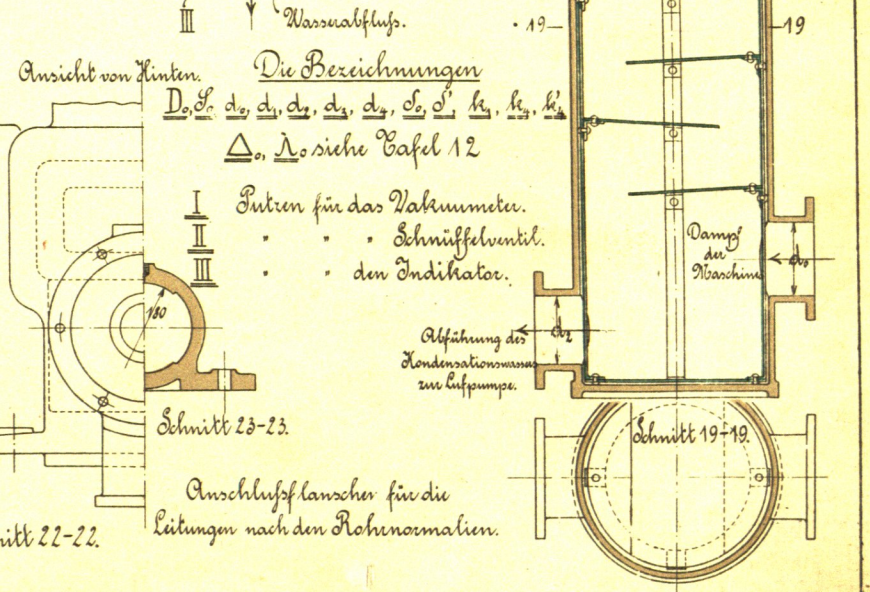 III
Wasserabfluſs.
19
19
Ansicht von Hinten.
Die Bezeichnungen
d₀, d₁, d₂, d₃, d₄,
siehe Tafel 12
I Putzen für das Vakuumeter.
II " " " Schnüffelventil.
III " " den Indikator.
Dampf
der
Maschine
d₀
180
d₂
Abführung des
Kondensationswassers
zur Lufpumpe.
Schnitt 23-23.
Schnitt 19-19.
Anschluſsflanschen für die
Leitungen nach den Rohrnormalien.
nitt 22-22.